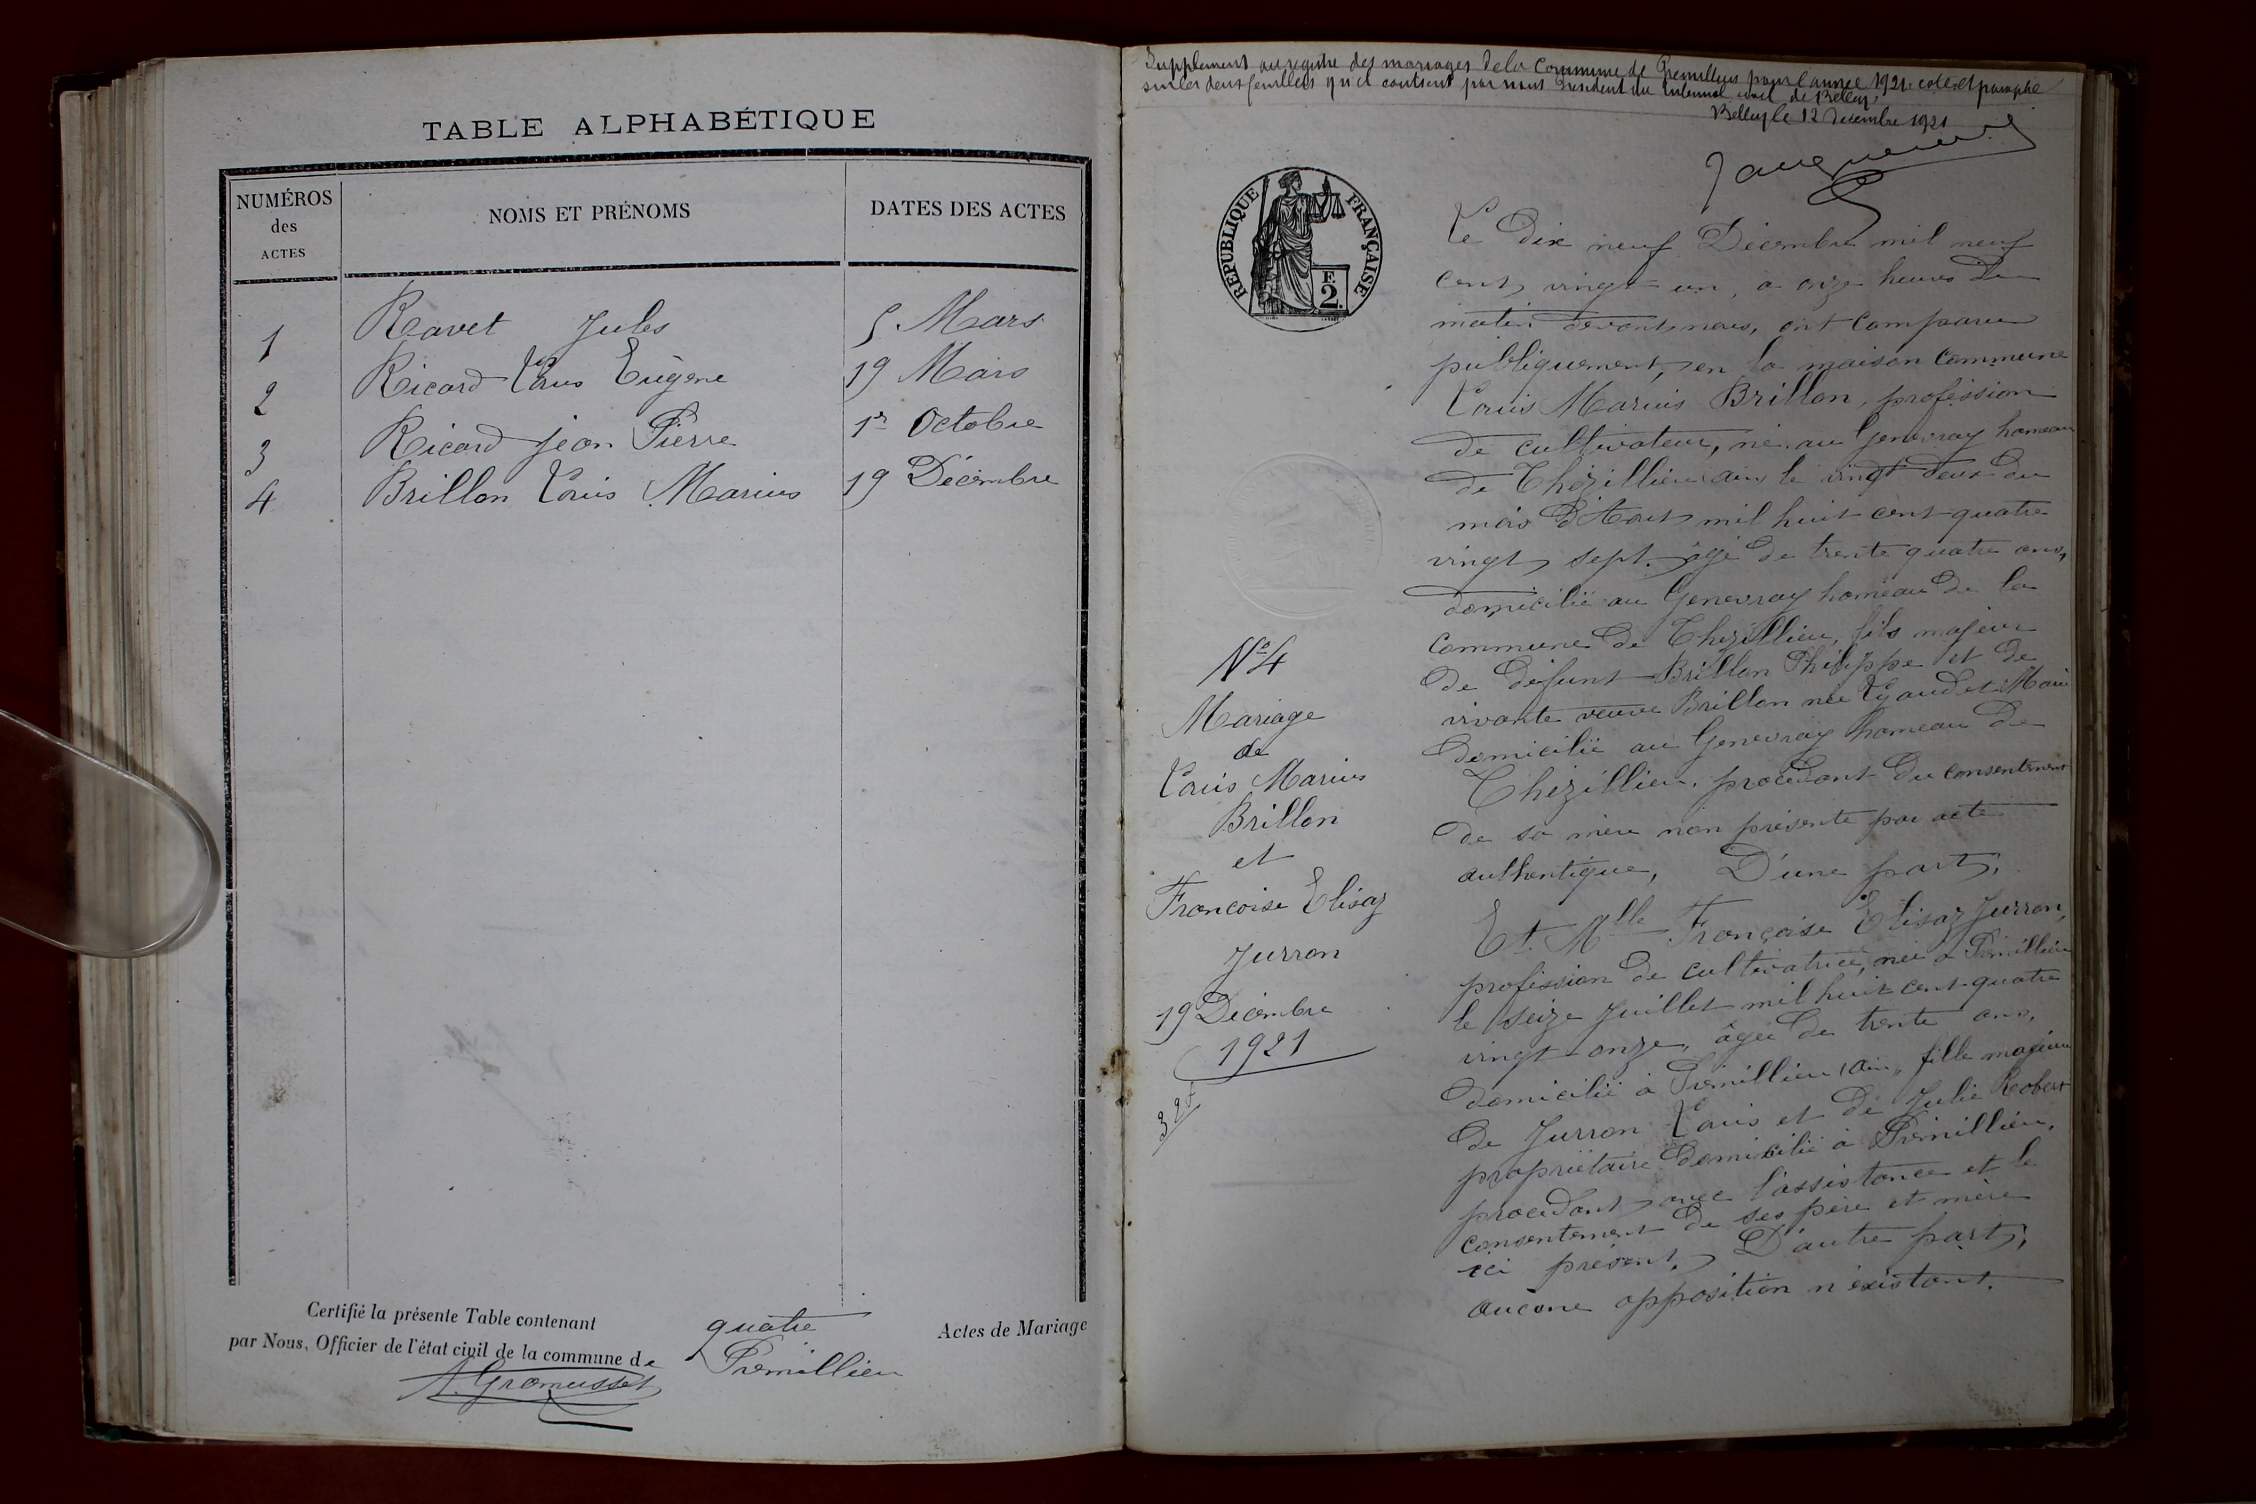 TABLE ALPHABÉTIQUE
NUMÉROS
des
ACTES
NOMS ET PRÉNOMS
DATES DES ACTES
1 Ravet Jules 5 Mars
2 Ricard Louis Eugène 19 Mars
3 Ricard Jean Pierre 1er Octobre
4 Brillon Louis Marius 19 Décembre
Certifié la présente Table contenant quatre Actes de Mariage
par Nous, Officier de l'état civil de la commune de Premillieu
A. Gromusset
Supplement au registre des mariages de la Commune de Premillieu pour l'année 1921. coté et paraphé
sur les deux feuillets qu'il contient par nous President du tribunal civil de Belley,
Belley le 12 Decembre 1921
RÉPUBLIQUE FRANÇAISE
F.
2.
No 4
Mariage
de
Louis Marius
Brillon
et
Francoise Elisaz
Jurron
19 Décembre
1921
Le dix neuf Décembre mil neuf
cent vingt un, à onze heures du
matin devant nous, ont comparu
publiquement, en la maison commune
Louis Marius Brillon, profession
de cultivateur, né au Genevray hameau
de Thézillieu Ain le vingt deux du
mois d'Aout mil huit cent quatre
vingt sept. âgé de trente quatre ans,
domicilié au Genevray hameau de la
commune de Thezillieu, fils majeur
de défunt Brillon Philippe et de
vivante veuve Brillon née Marie
domicilié au Genevray hameau de
Thézillieu. procédant du consentement
de sa mère non présente par acte
authentique, D'une part,
Et Mlle Françoise Elisaz Jurron,
profession de cultivatrice, née à Prémillieu
le seize Juillet mil huit cent quatre
vingt onze, âgée de trente ans,
domicilié à Prémillieu, Ain, fille majeure
de Jurron Louis et de Julie Robert
propriétaire domicilié à Prémillieu,
procédant avec l'assistance et le
consentement de ses père et mère
ici présent, D'autre part,
aucune opposition n'existant.